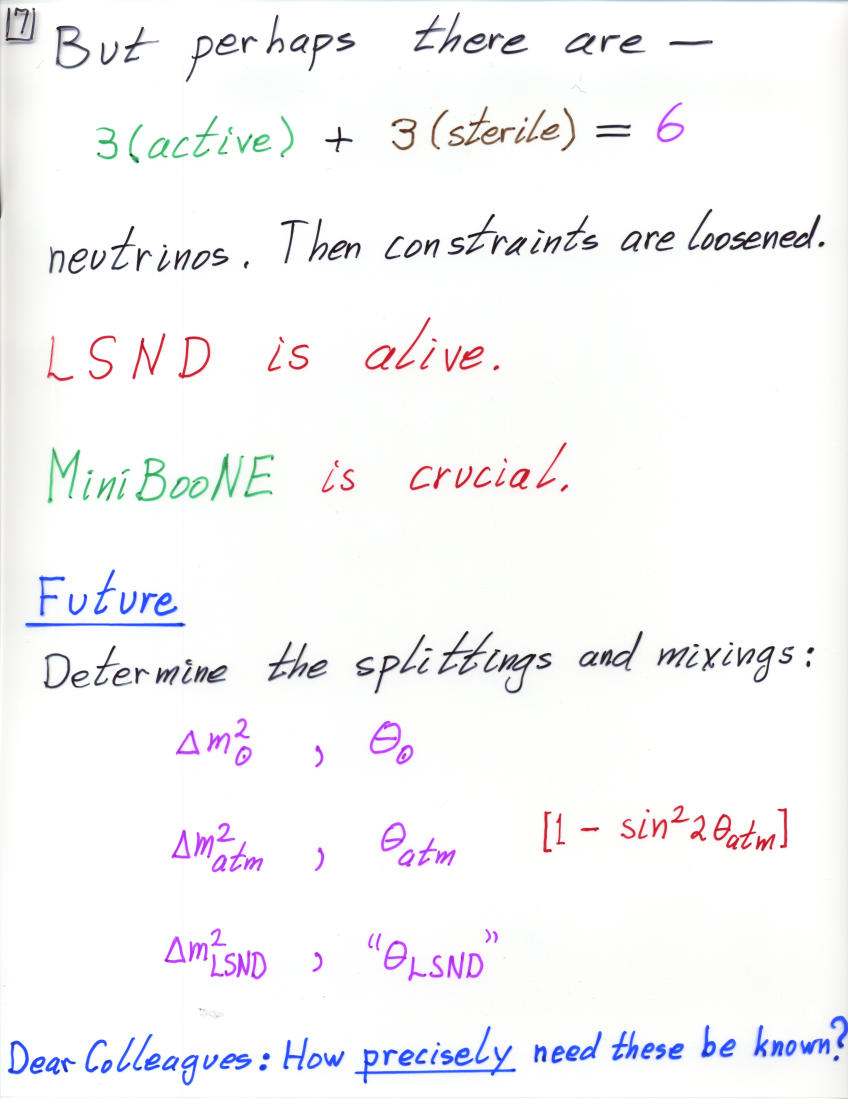 17
But perhaps there are —
3(active) + 3(sterile) = 6
neutrinos. Then constraints are loosened.
LSND is alive.
MiniBooNE is crucial.
Future
Determine the splittings and mixings:
Δm²⊙ , θ⊙
Δm²atm , θatm [1 - sin²2θatm]
Δm²LSND , “θLSND”
Dear Colleagues: How precisely need these be known?